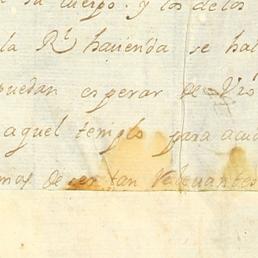 su cuerpo. y los de los
la Rl. hacienda se hal
puedan esperar de
aquel templo para acu
de ser tan relevantes